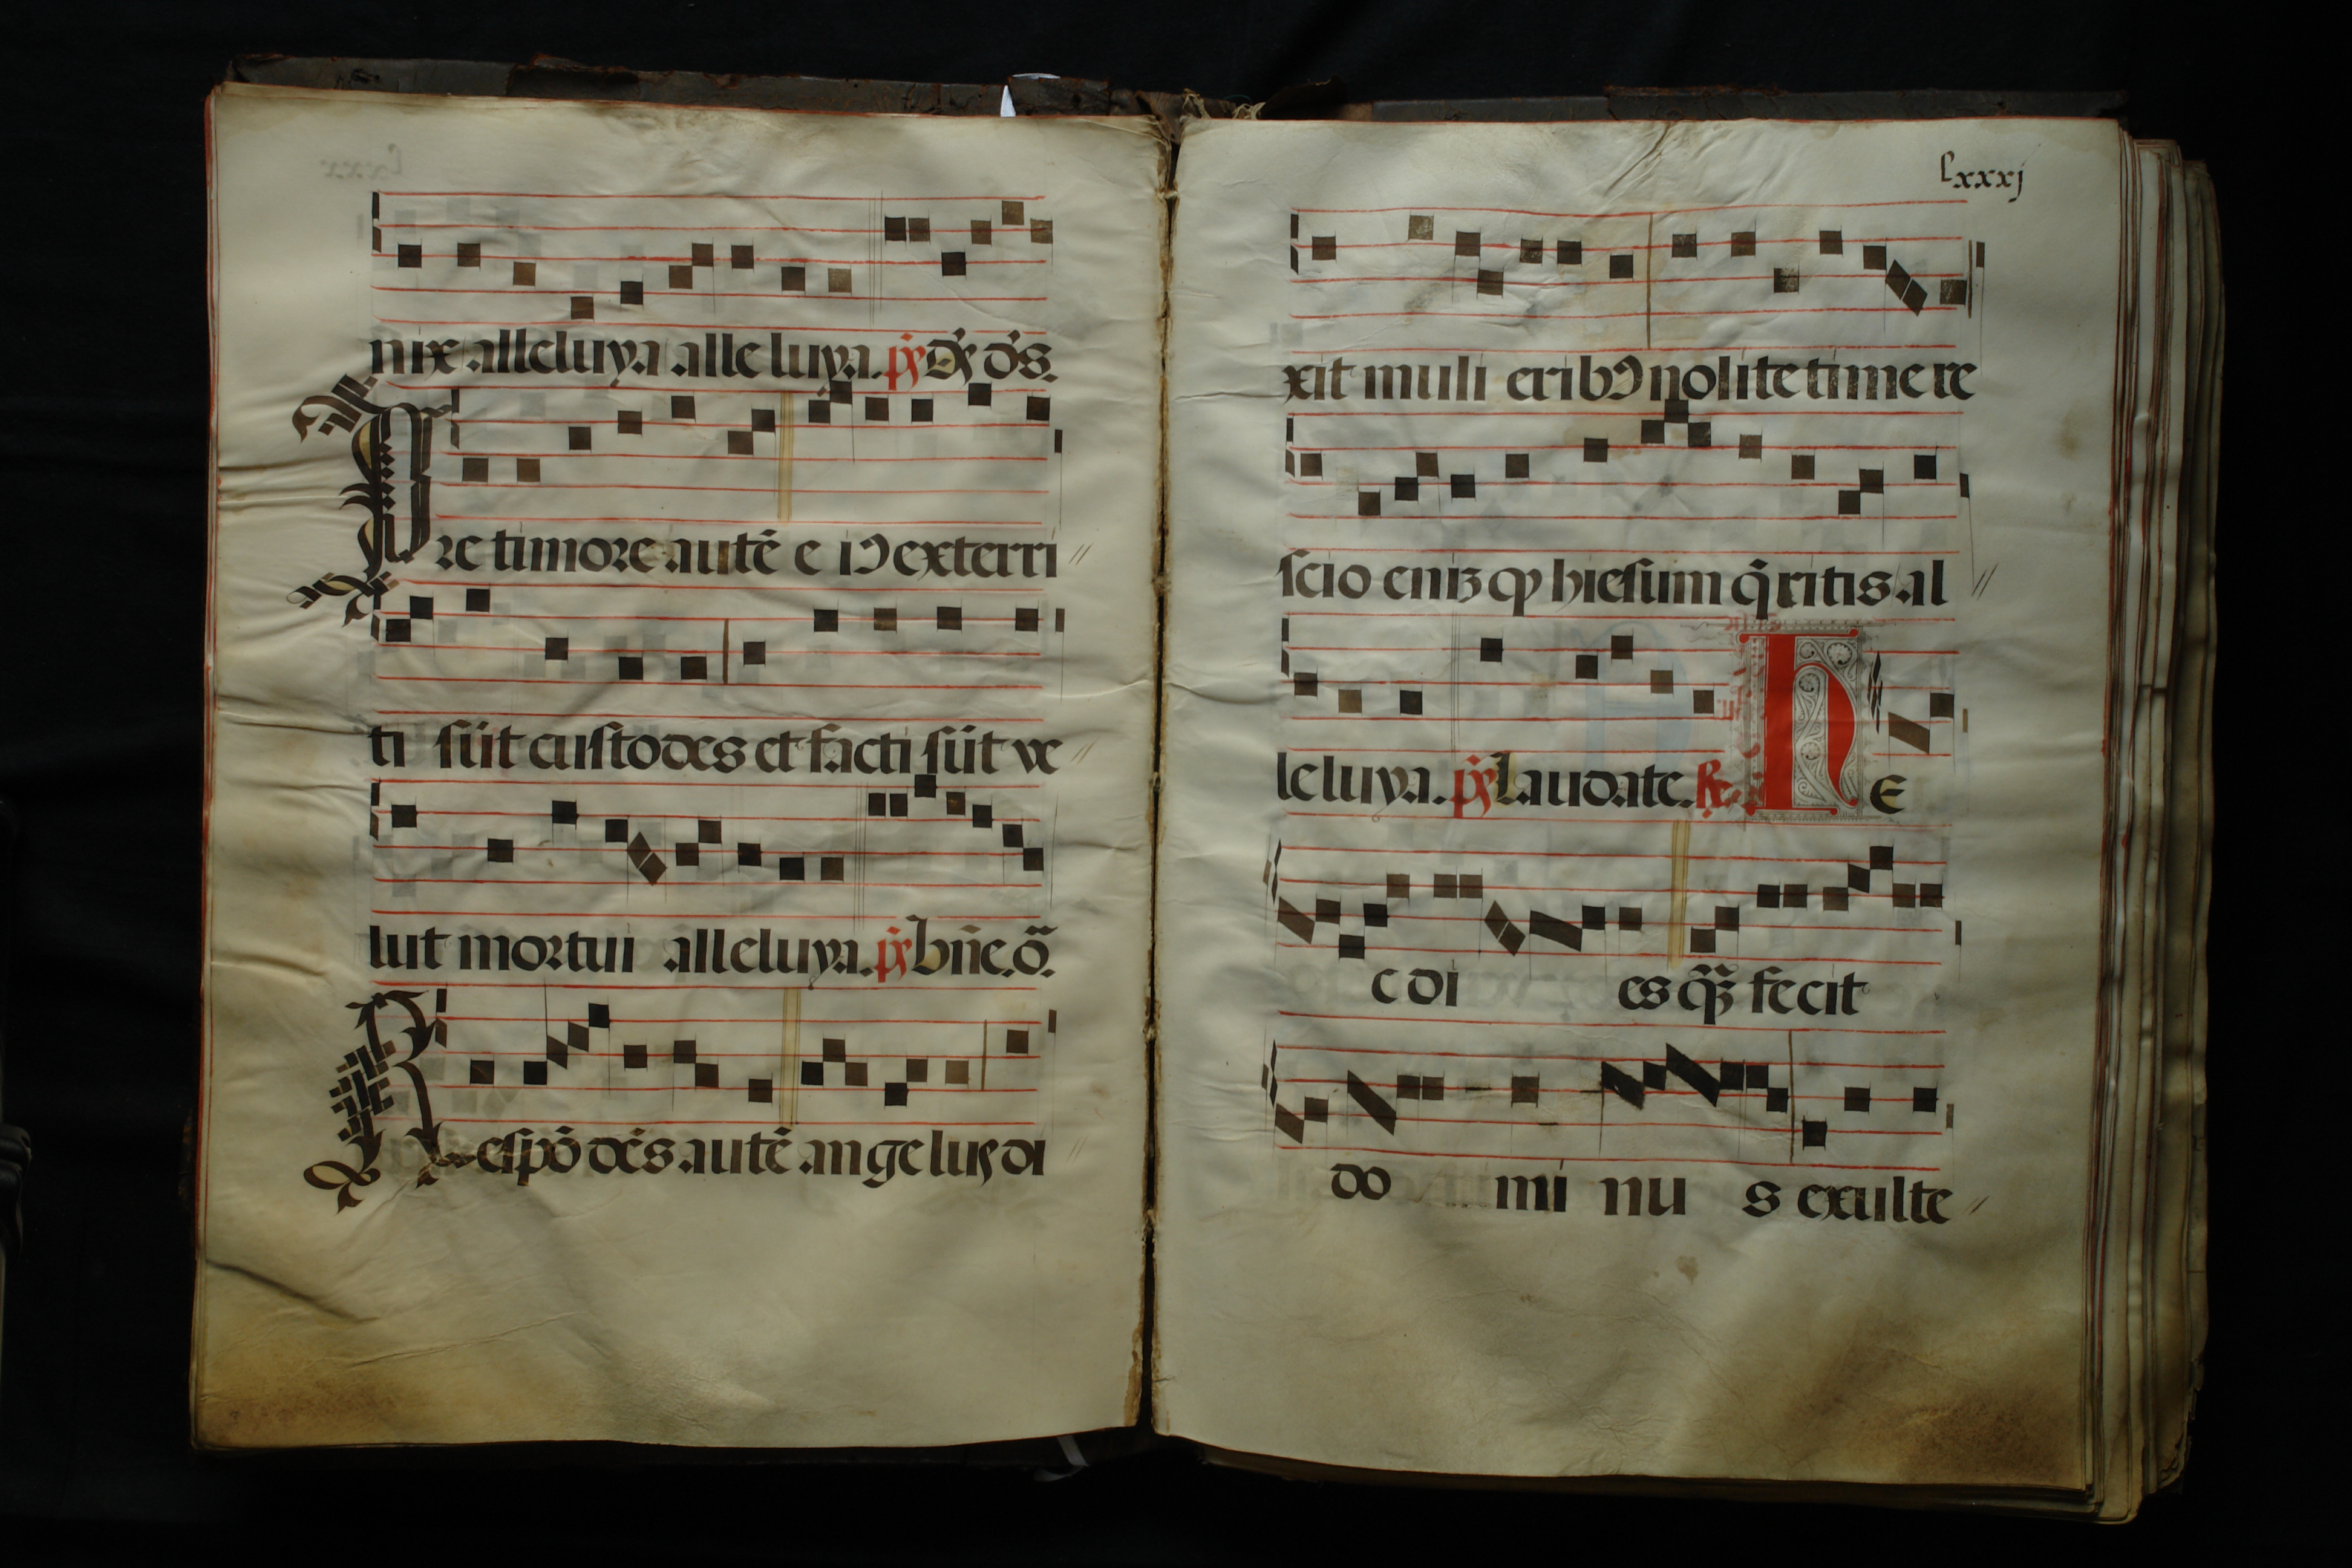 nix alleluya alle luya. p̃s Dx̃ dñs.
Pre timore autē e iꝰ exterri
ti sūt custodes et facti sūt ve
lut mortui alleluya. p̃s bñe. õ.
Respōdēs autē angelus di
Lxxxj
xit muli eribꝰ nolite time re
scio eniȝ ꝙ hiesum q̃ritis al
leluya. p̃s Laudate. R. he E
c di es quã fecit
do mi nu s exulte